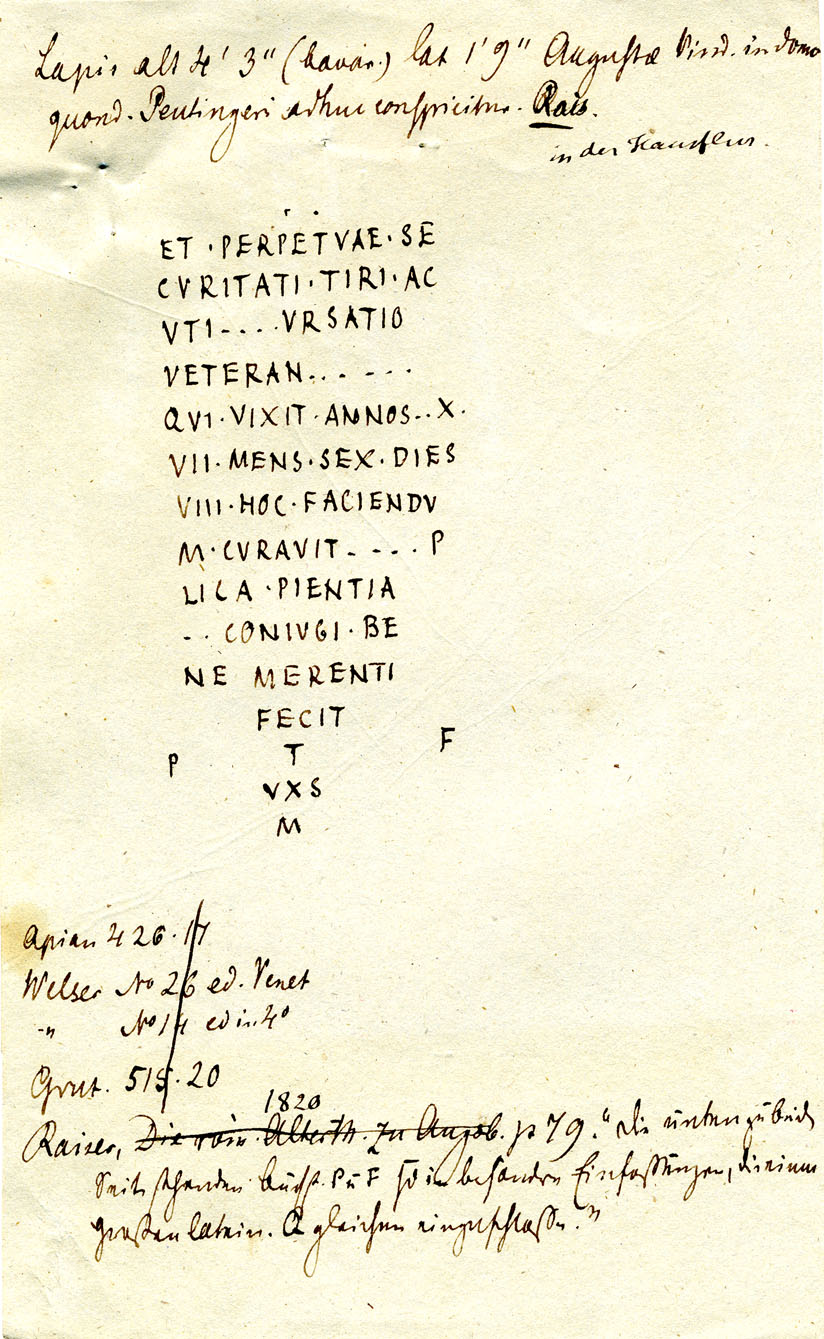 Lapis alt 4' 3" (bavar.) lat 1' 9" Augustæ Vind. in domo
quond. Peutingeri adhuc conspicitur. Rais.
in der Hausflur.
ET · PERPETVAE · SE
CVRITATI · TIRI · AC
VTI - . . . VRSATIO
VETERAN . . . - - .
QVI · VIXIT · ANNOS . . X .
VII · MENS · SEX · DIES
VIII · HOC · FACIENDV
M · CVRAVIT - . - . . P
LICA · PIENTIA
- . CONIVGI · BE
NE MERENTI
FECIT
P T F
VXS
M
Apian 426 · 17
Welser No 26 ed. Venet
-" No 14 ed in 4º
Grut. 515 · 20
1820
Raiser, Die röm. Alterth. zu Augsb. p 79. "die unten zu beid
Seit. stehenden Buchst. P u F sd in besondre Einfassungen, die einem
großen latein. Q gleichen eingeschlossen."